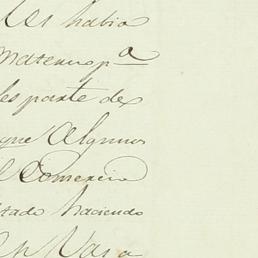 les habia
Materias pª
les parte de
que Algunos
l Comercio
stado haciendo
en Vara